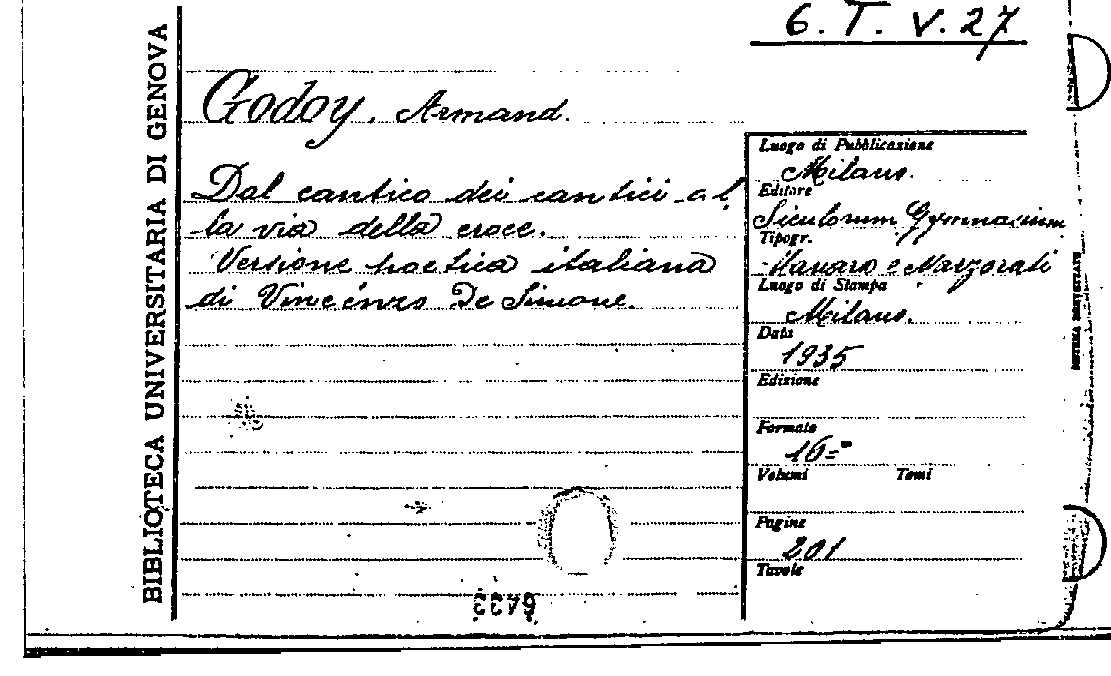 6. T. V. 27
BIBLIOTECA UNIVERSITARIA DI GENOVA
Godoy, Armand.
Dal cantico dei cantici al
la via della croce.
Versione poetica italiana
di Vincenzo De Simone.
Luogo di Pubblicazione
Milano.
Editore
Siculorum Gymnasium
Tipogr.
e Marzorati
Luogo di Stampa
Milano.
Data
1935
Edizione
Formato
16=°
Volumi Tomi
Pagine
201
Tavole